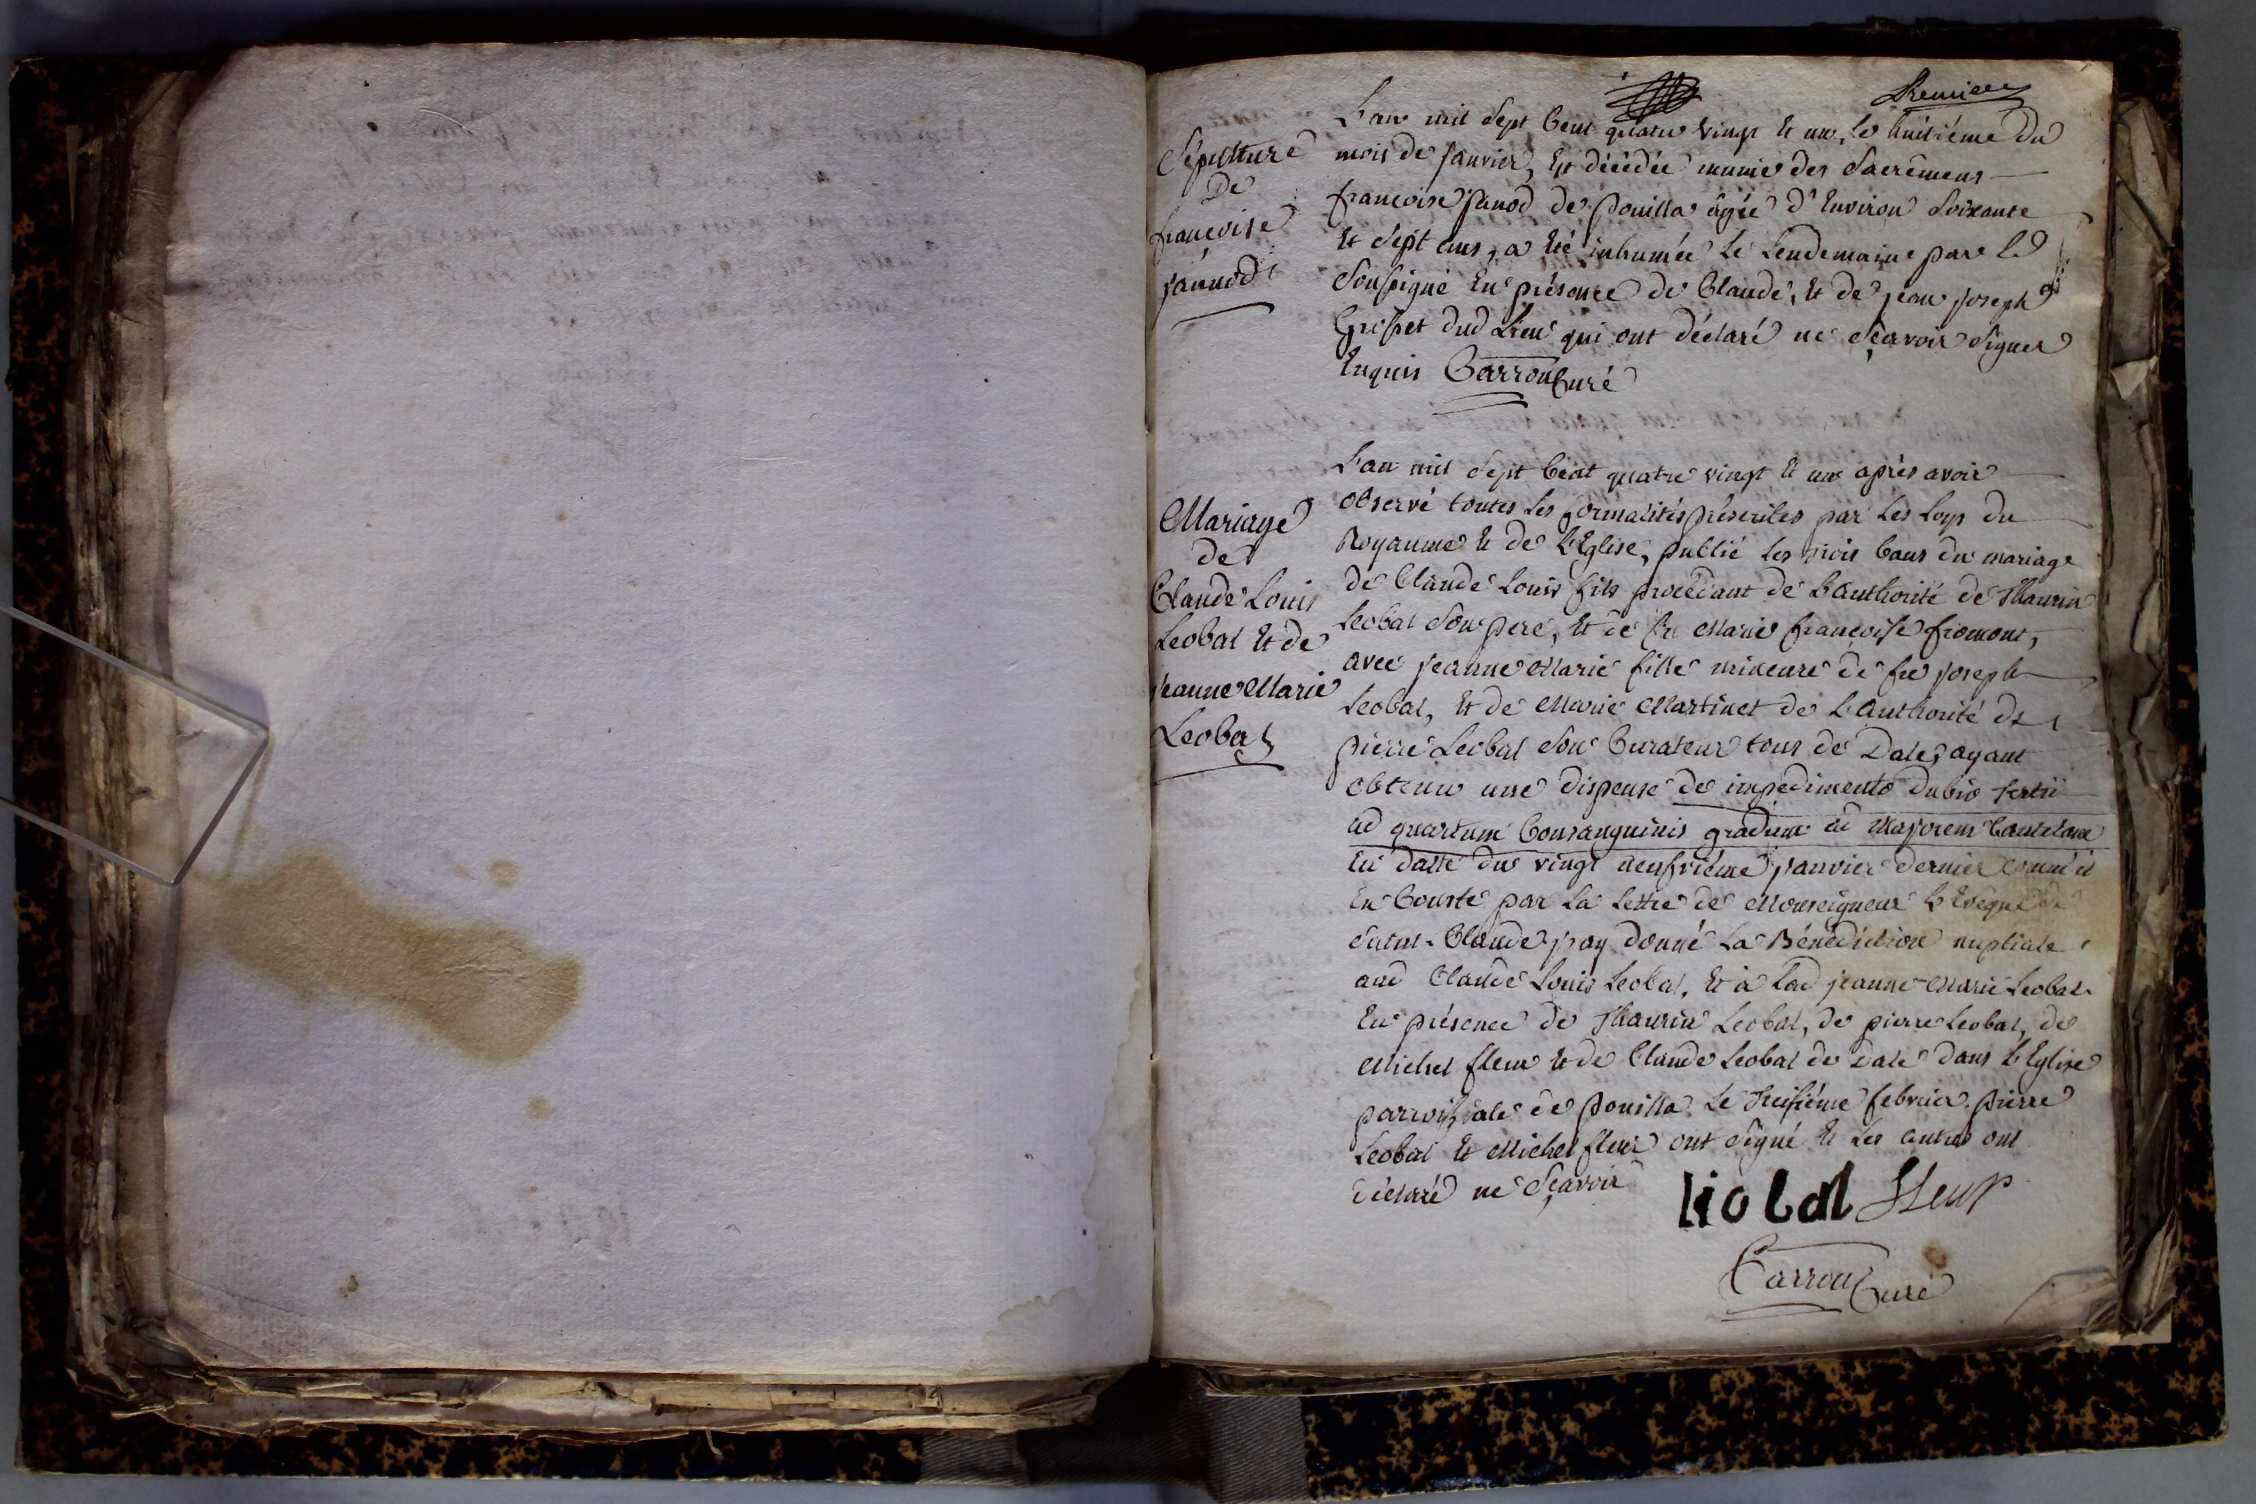 Premier
Sépulture
De
francoise
janod
L'an mil Sept Cent quatre vingt Et un, le huitiéme du
mois de janvier, Est décédée munie des Sacrémens
francoise janod de pouilla âgée d'Environ Soixante
Et Sept ans, a Eté inhumée le Lendemain par le
Soussigné En présence de Claude, Et de jean joseph
dud Lieu qui ont déclaré ne Sçavoir Signer
Enquis Carron Curé
Mariage
de
Claude Louis
Leobal Et de
jeanne Marie
Leobal
L'an mil Sept Cent quatre vingt Et un aprés avoir
observé toutes les formalités préscrites par les Loys du
Royaume Et de L'Eglise, publié les trois bans du mariage
de Claude Louis fils procédant de L'authorité de Thaurin
Leobal Son pere, Et de fu Marie francoise fromont,
avec jeanne Marie fille mineure de fu joseph
Leobal, Et de Marie Martinet de L'authorité de
pierre Leobal Son Curateur tous de Dale, ayant
obtenu une dispense de impedimento dubio tertii
ad quartum Consanguinis gradum ad Majorem Cautelam
En datte du vingt neufviéme janvier dernier comm'il
En Conste par La Lettre de Monseigneur L'Evêque de
Saint-Claude j'ay donné La Bénédiction nuptiale
aud Claude Louis Leobal, Et à lad jeanne-Marie Leobal
En présence de Thaurin Leobal, de pierre Leobal, de
Michel fleur Et de Claude Leobal de Dale dans L'Eglise
parroissiale de pouilla Le treisiéme febvrier. pierre
Leobal Et Michel fleur ont Signé Et Les autres ont
déclaré ne Sçavoir
liobal fleur
Carron Curé